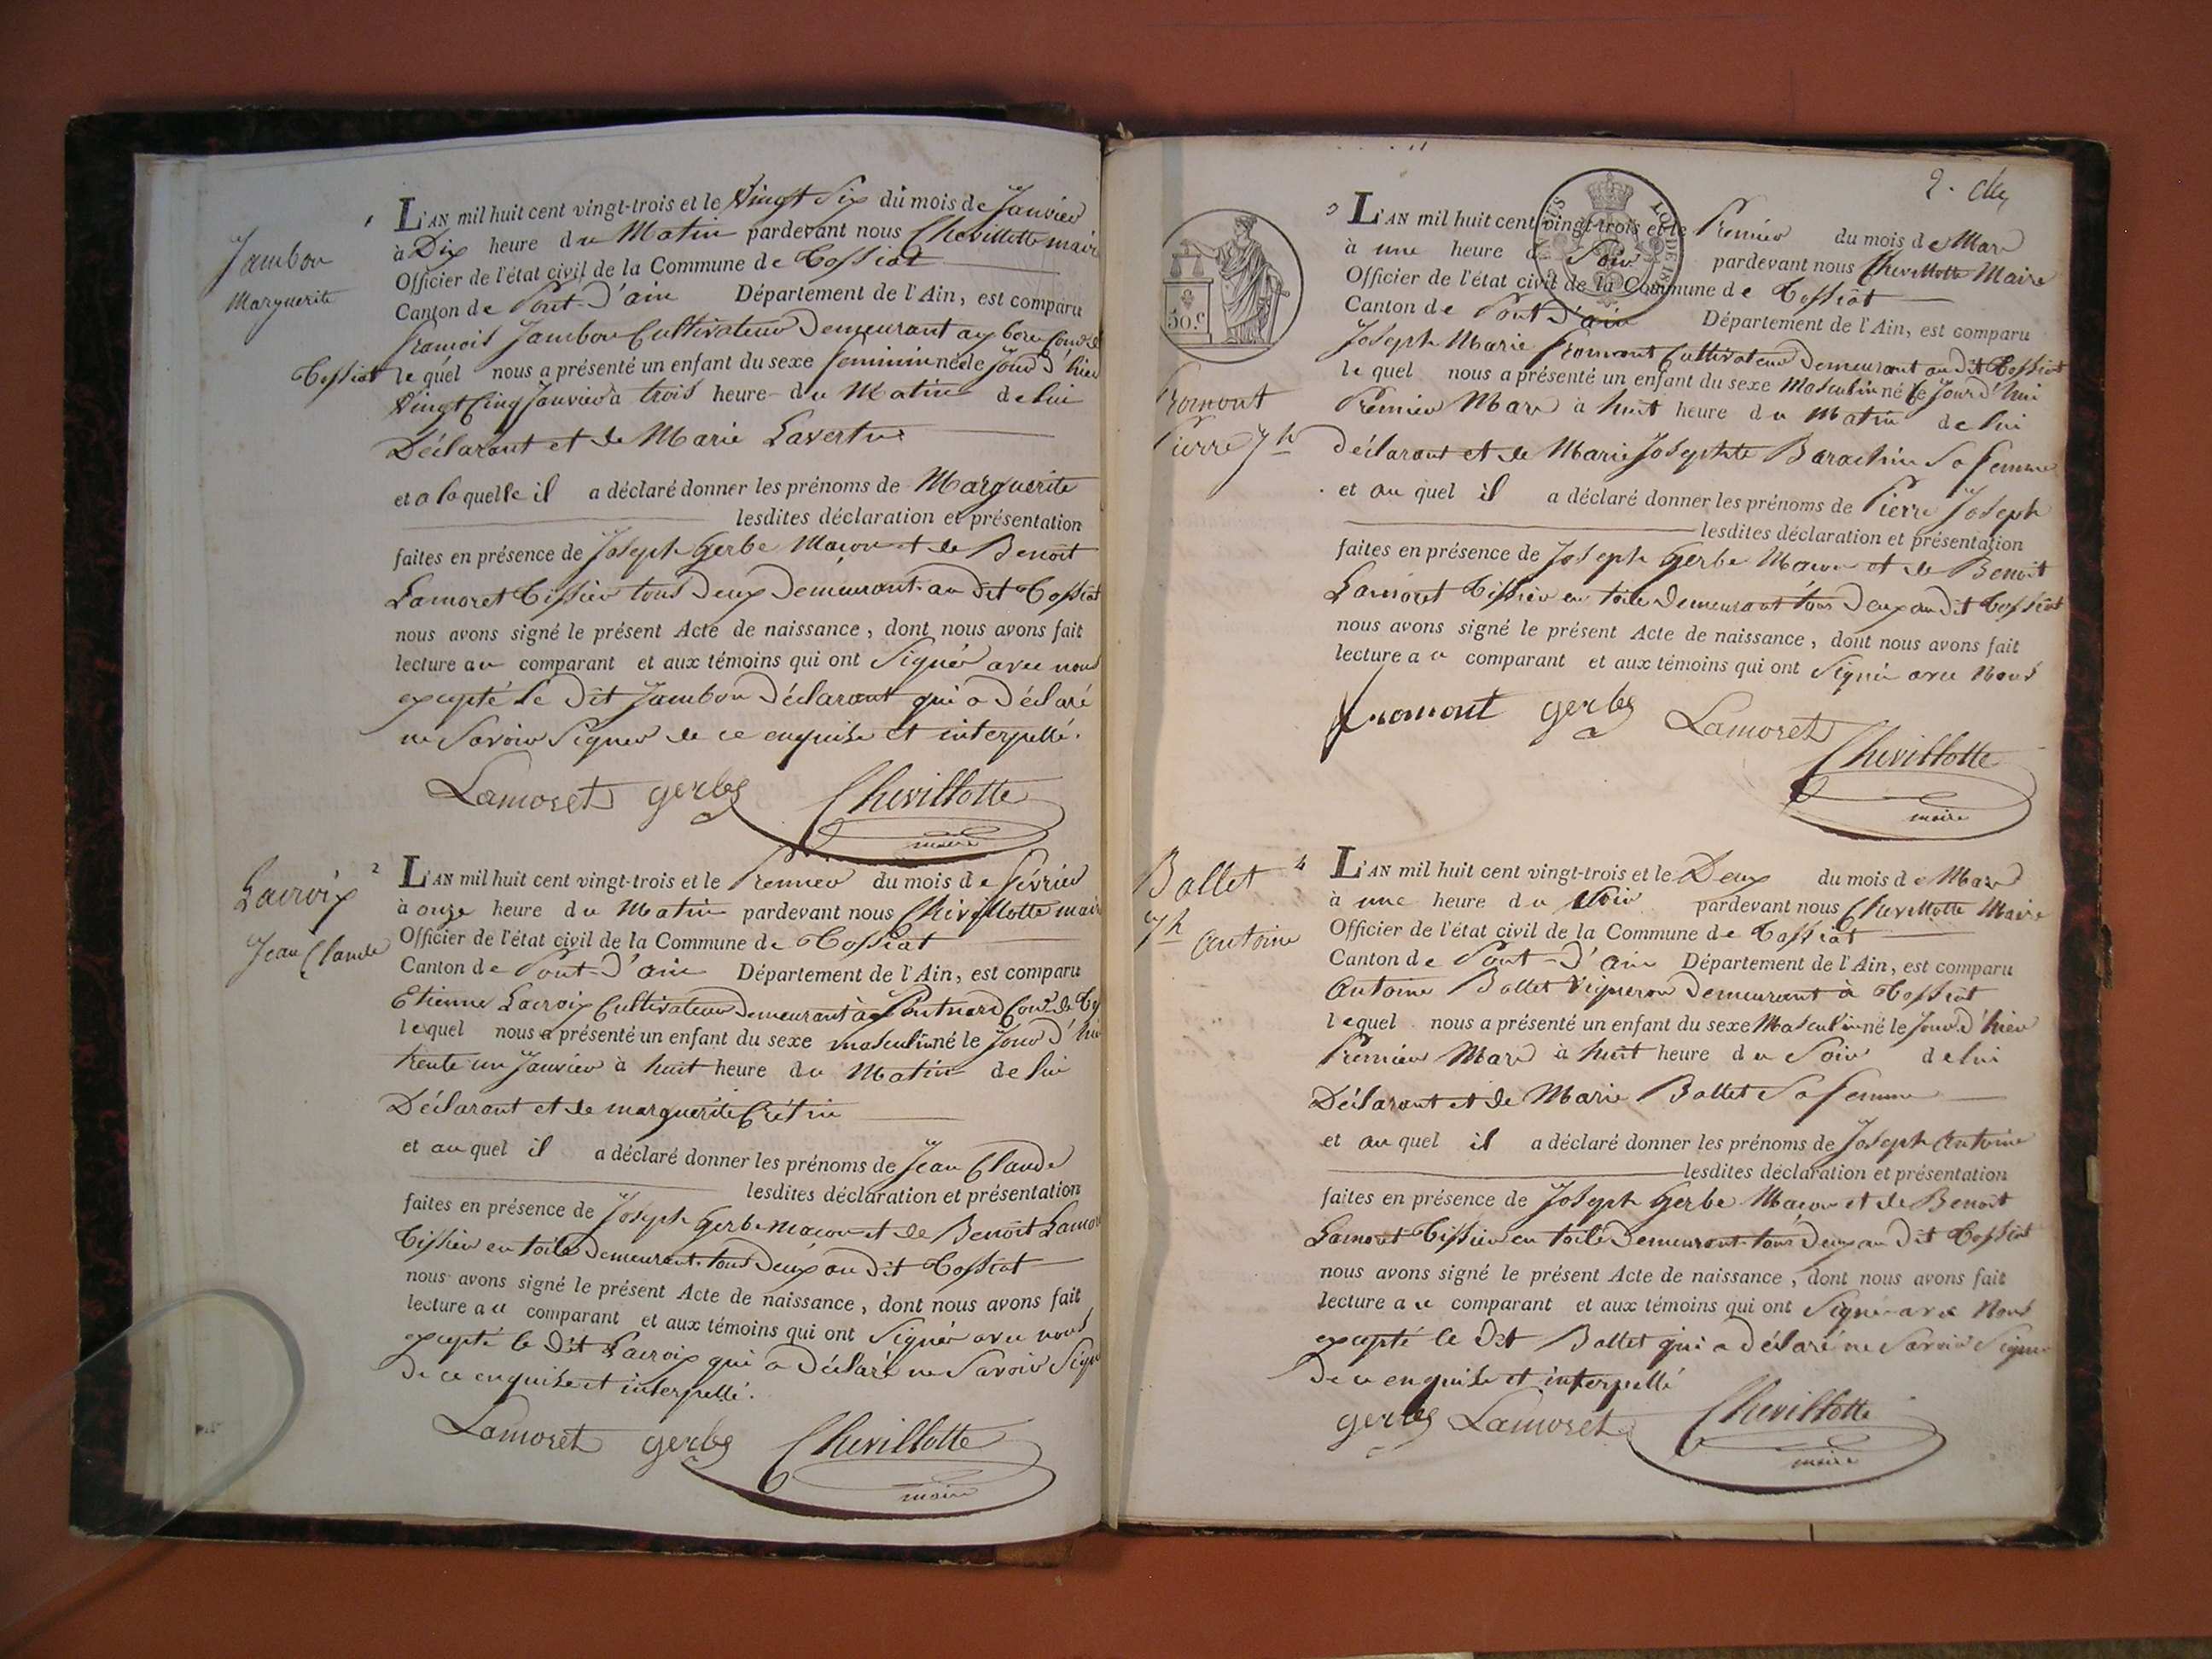 Jambon
Marguerite
1
L'AN mil huit cent vingt-trois et le Vingt Six du mois de Janvier
à Dix heure du Matin pardevant nous Chevillotte maire
Officier de l'état civil de la Commune de Tossiat
Canton de Pont-D'ain Département de l'Ain, est comparu
francois Jambon Cultivateur Demeurant au
Tossiat le quel nous a présenté un enfant du sexe feminin née le Jour d'hier
Vingt Cinq Janvier à trois heure du Matin de lui
Déclarant et de Marie Lavertue
et a laquelle il a déclaré donner les prénoms de Marguerite
lesdites déclaration et présentation
faites en présence de Joseph Gerbe Macon et de Benoît
Lamoret Tissier tous Deux Demeurant au dit Tossiat
nous avons signé le présent Acte de naissance, dont nous avons fait
lecture au comparant et aux témoins qui ont Signés avec nous
excepté le Dit Jambon Déclarant qui a Déclaré
ne Savoir Signer de ce enquise et interpellé.
Lamoret gerbe Chevillotte
maire
Lacroix
Jean Claude
2
L'AN mil huit cent vingt-trois et le Premier du mois de février
à onze heure du Matin pardevant nous Chevillotte maire
Officier de l'état civil de la Commune de Tossiat
Canton de Pont-D'ain Département de l'Ain, est comparu
Etienne Lacroix Cultivateur Demeurant à
le quel nous a présenté un enfant du sexe masculin né le Jour d'hier
trente un Janvier à huit heure du Matin de lui
Déclarant et de marguerite Crétin
et au quel il a déclaré donner les prénoms de Jean Claude
lesdites déclaration et présentation
faites en présence de Joseph Gerbe macon et de Benoît Lamoret
Tissier en toile Demeurant tous Deux au dit Tossiat
nous avons signé le présent Acte de naissance, dont nous avons fait
lecture au comparant et aux témoins qui ont Signés avec nous
excepté le Dit Lacroix qui a Déclaré ne Savoir Signer
De ce enquise et interpellé.
Lamoret gerbe Chevillotte
maire
2.
30.c
Fromont
Pierre Jh
3
L'AN mil huit cent vingt-trois et le Premier du mois de Mars
à une heure du Soir pardevant nous Chevillotte Maire
Officier de l'état civil de la Commune de Tossiat
Canton de Pont-D'ain Département de l'Ain, est comparu
Joseph Marie Fromont Cultivateur Demeurant au dit Tossiat
le quel nous a présenté un enfant du sexe Masculin né le Jourd'hui
Premier Mars à huit heure du Matin de lui
déclarant et de Marie Josephte Barachin Sa femme
et au quel il a déclaré donner les prénoms de Pierre Joseph
lesdites déclaration et présentation
faites en présence de Joseph Gerbe Macon et de Benoît
Lamoret Tissier en toile Demeurant tous Deux au dit Tossiat
nous avons signé le présent Acte de naissance, dont nous avons fait
lecture au comparant et aux témoins qui ont Signé avec Nous
fromont gerbe Lamoret
Chevillotte
maire
Ballet
Jh Antoine
4
L'AN mil huit cent vingt-trois et le Deux du mois de Mars
à une heure du Soir pardevant nous Chevillotte Maire
Officier de l'état civil de la Commune de Tossiat
Canton de Pont-D'ain Département de l'Ain, est comparu
Antoine Ballet Vigneron Demeurant à Tossiat
le quel nous a présenté un enfant du sexe Masculin né le Jour d'hier
Premier Mars à huit heure du Soir de lui
Déclarant et de Marie Ballet Sa femme
et au quel il a déclaré donner les prénoms de Joseph Antoine
lesdites déclaration et présentation
faites en présence de Joseph Gerbe Macon et de Benoît
Lamoret Tissier en toile Demeurant tous Deux au Dit Tossiat
nous avons signé le présent Acte de naissance, dont nous avons fait
lecture au comparant et aux témoins qui ont Signé avec Nous
excepté le Dit Ballet qui a Déclaré ne Savoir Signer
De ce enquise et interpellé
gerbe Lamoret Chevillotte
maire